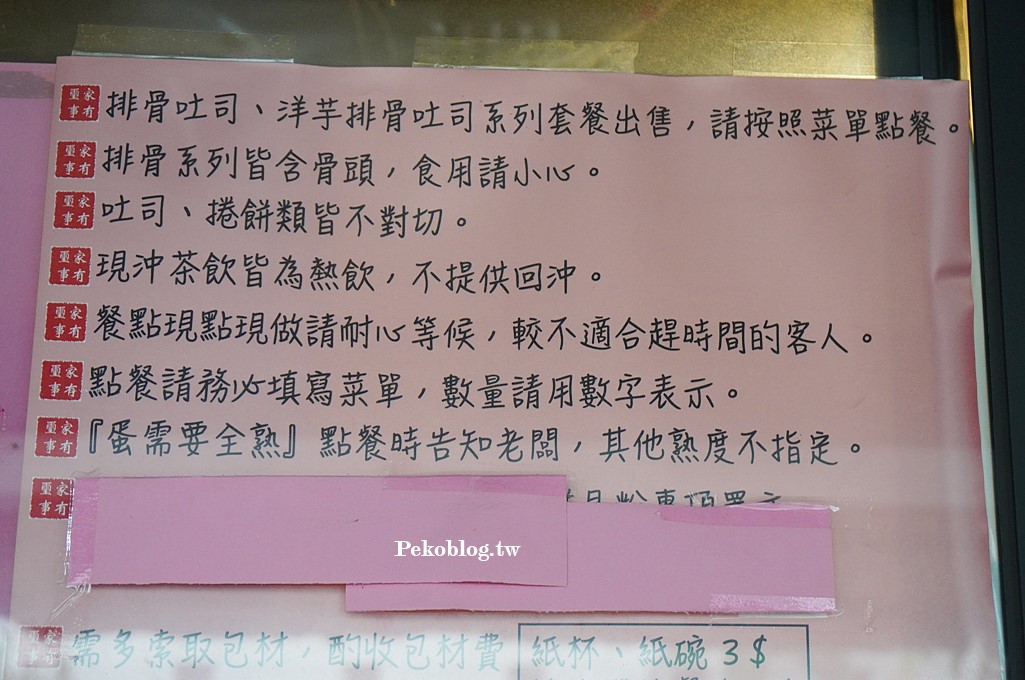 家有喜事 排骨吐司、洋芋排骨吐司系列套餐出售，請按照菜單點餐。
排骨系列皆含骨頭，食用請小心。
吐司、捲餅類皆不對切。
現沖茶飲皆為熱飲，不提供回沖。
餐點現點現做請耐心等候，較不適合趕時間的客人。
點餐請務必填寫菜單，數量請用數字表示。
『蛋需要全熟』點餐時告知老闆，其他熟度不指定。
Pekoblog.tw
需多索取包材，酌收包材費 紙杯、紙碗 3$